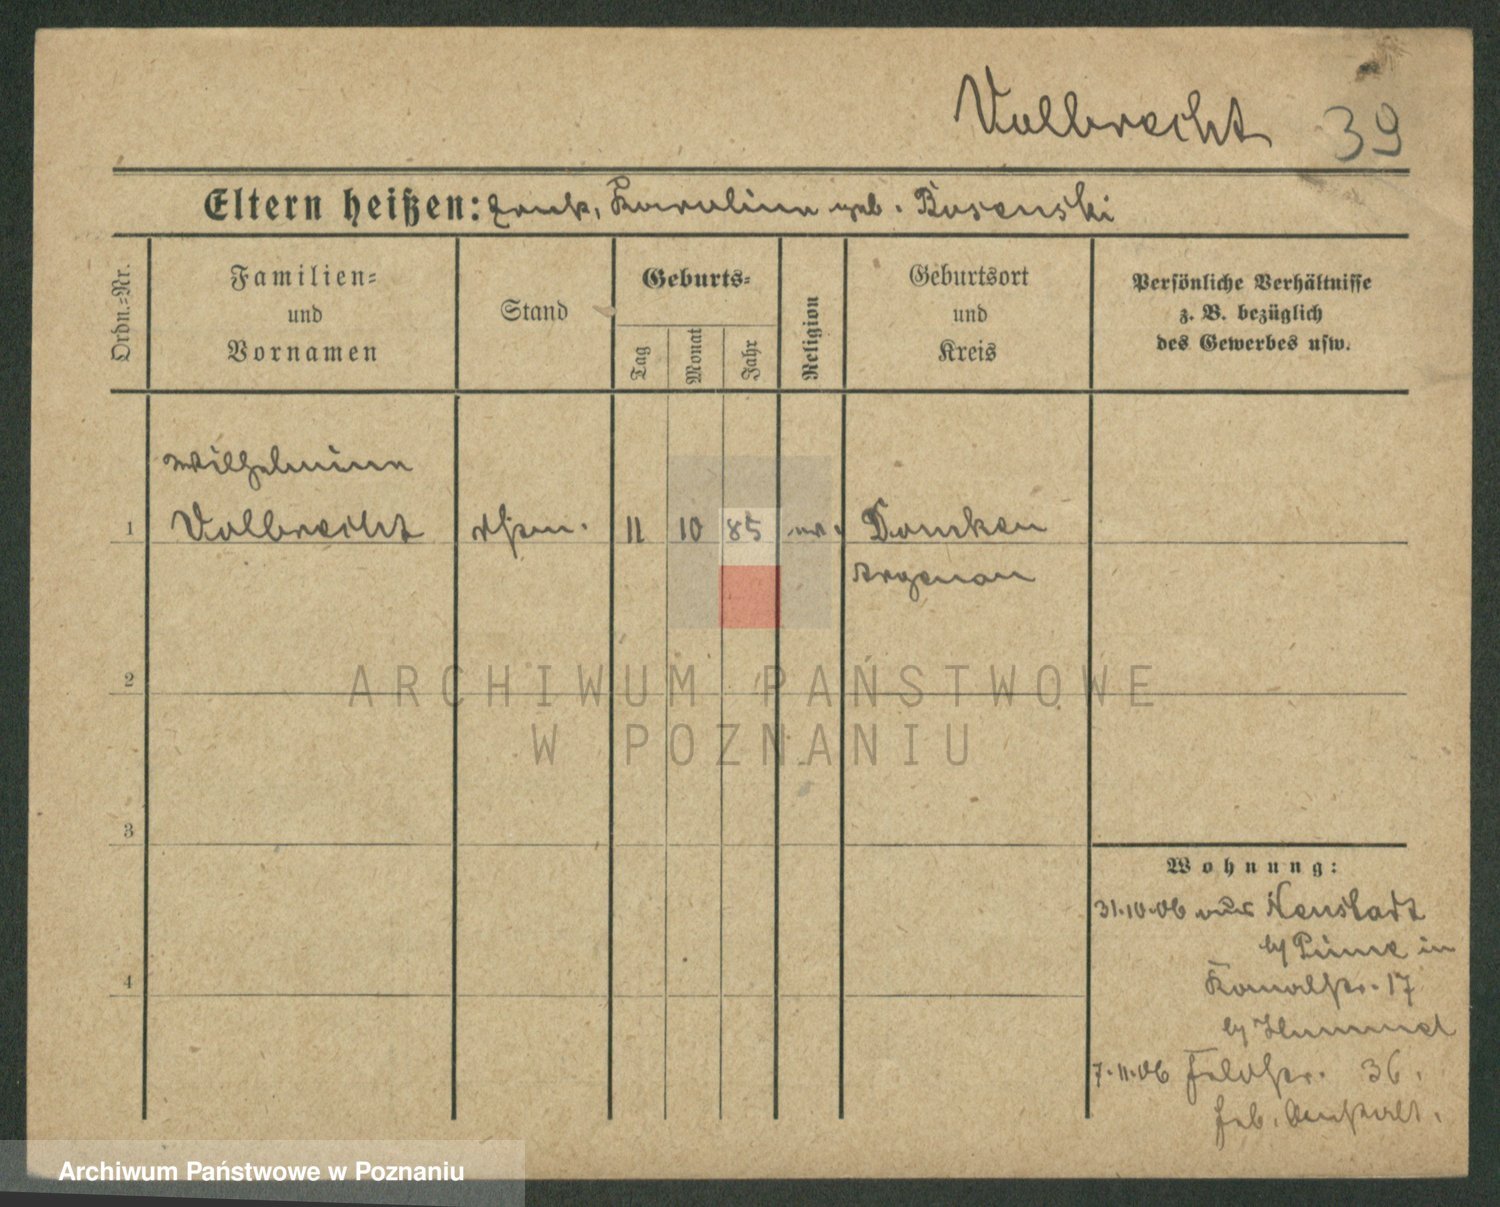 Volbrecht 39
Eltern heißen: Karoline geb. Bosenski
Ordn.=Nr.
Familien=
und
Vornamen
Stand
Geburts=
Tag
Monat
Jahr
Religion
Geburtsort
und
Kreis
Persönliche Verhältnisse
z. B. bezüglich
des Gewerbes usw.
Wilhelmine
1 Volbrecht 11 10 85 ev. Dombken
Argenau
2
ARCHIWUM PAŃSTWOWE
W POZNANIU
3
Wohnung:
31.10.06 aus Neustadt
b/ Pinne in
4
Kanalstr. 17
b/ Hummel
7.11.06 Feldstr. 36.
Archiwum Państwowe w Poznaniu